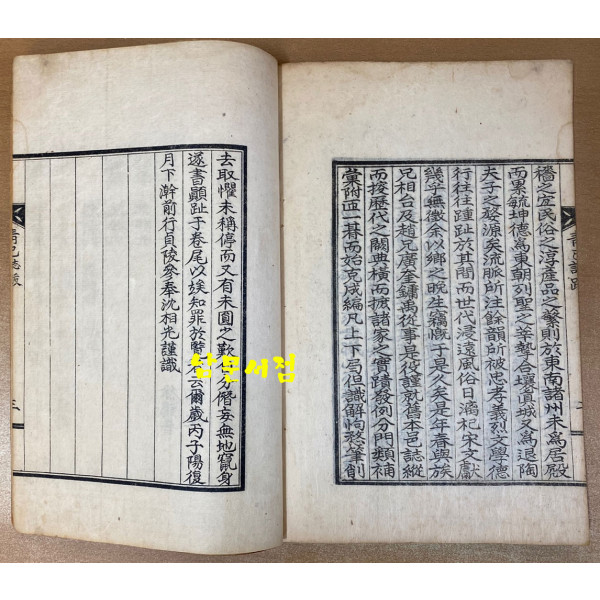 穡之宜民俗之淳産品之繁則於東南諸州未爲居殿
而累毓坤德爲東朝列聖之莘摯合壤眞城又爲退陶
夫子之婺源矣流脈所注餘韻所被忠孝義烈文學德
行往往踵趾於其間而世代浸遠風俗日渝杞宋文獻
幾乎無徵余以鄉之晚生竊慨于是久矣是年春與族
兄相台及趙兄廣奎鏞禹從事是役謹就舊本邑誌縱
而按歷代之闕典橫而摭諸家之實蹟發例分門類補
彙附匝一朞而始克成編凡上下局但識解恂愗筆削
靑己誌跋
二
去取懼未稱停而又有未圓之歎 分僭妄無地竄身
遂書顚趾于卷尾以竢知罪於 云爾歲丙子陽復
月下澣前行貞陵參奉沈相光謹識
靑己誌跋
三
남문서점